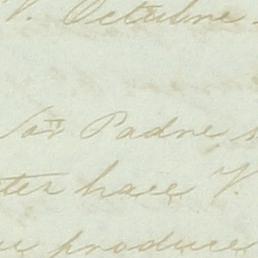 V. Octubre
Sor Padre s
ter hace V.
produce